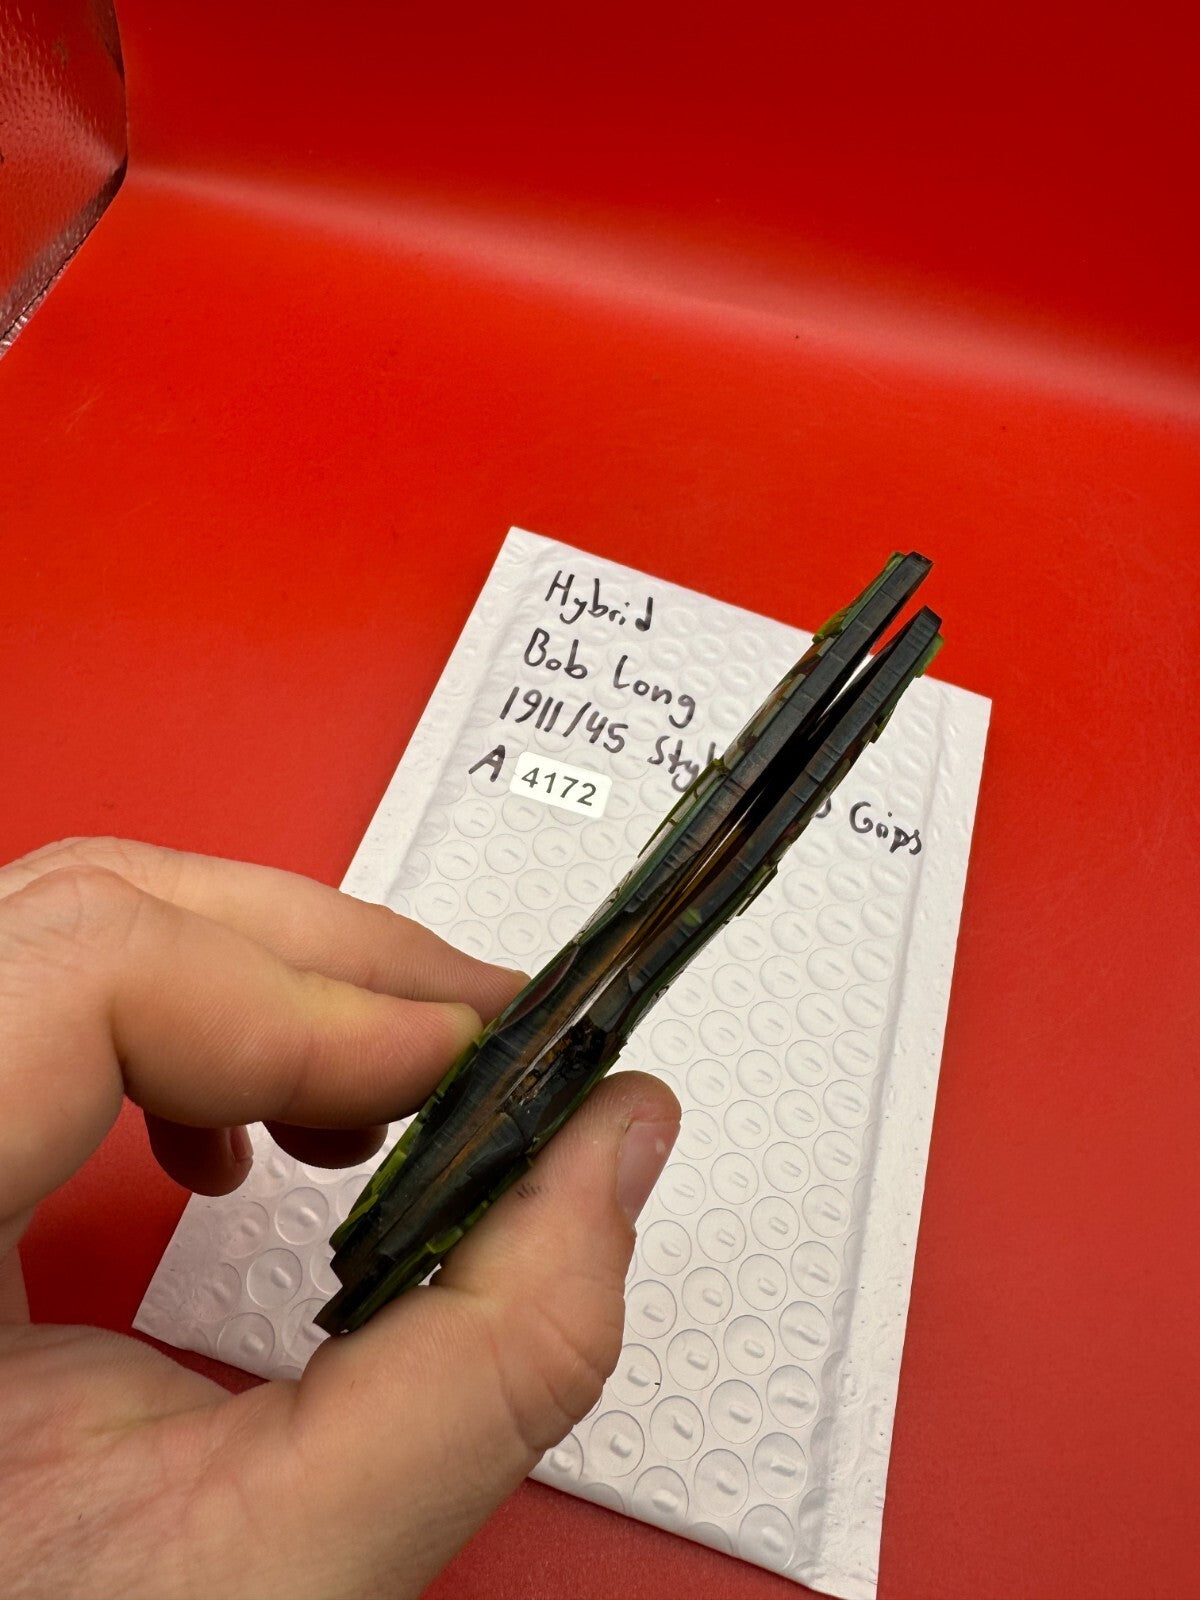 Hybrid
Bob Long
1911/45 Grips
A 4172